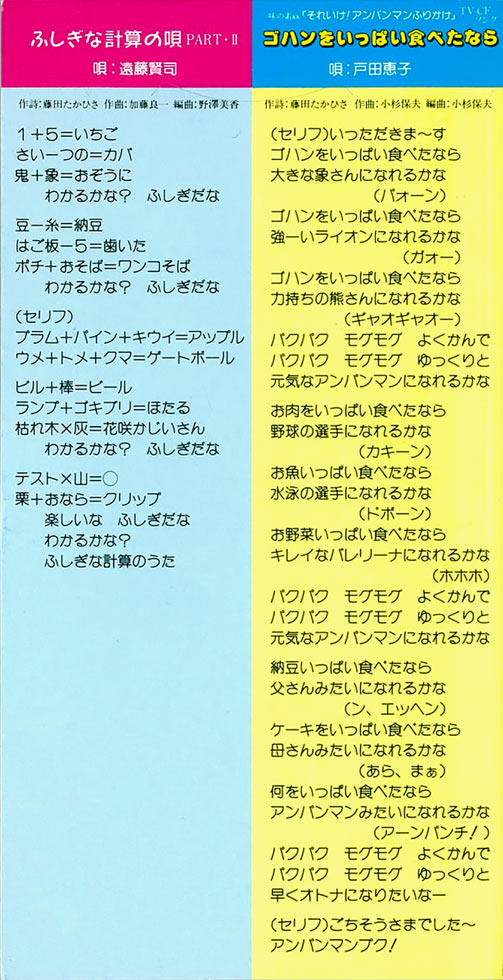 ふしぎな計算の唄 PART・II
唄：遠藤賢司
作詩：藤田たかひさ 作曲：加藤良一 編曲：野澤美香
1＋5＝いちご
さい－つの＝カバ
鬼＋象＝おぞうに
わかるかな？ ふしぎだな
豆－糸＝納豆
はご板－5＝歯いた
ポチ＋おそば＝ワンコそば
わかるかな？ ふしぎだな
（セリフ）
プラム＋パイン＋キウイ＝アップル
ウメ＋トメ＋クマ＝ゲートボール
ビル＋棒＝ビール
ランプ＋ゴキブリ＝ほたる
枯れ木×灰＝花咲かじいさん
わかるかな？ ふしぎだな
テスト×山＝○
栗＋おなら＝クリップ
楽しいな ふしぎだな
わかるかな？
ふしぎな計算のうた
味の素㈱「それいけ！アンパンマンふりかけ」TV-CFソング
ゴハンをいっぱい食べたなら
唄：戸田恵子
作詩：藤田たかひさ 作曲：小杉保夫 編曲：小杉保夫
（セリフ）いっただきま〜す
ゴハンをいっぱい食べたなら
大きな象さんになれるかな
（パォーン）
ゴハンをいっぱい食べたなら
強ーいライオンになれるかな
（ガォー）
ゴハンをいっぱい食べたなら
力持ちの熊さんになれるかな
（ギャオギャオー）
パクパク モグモグ よくかんで
パクパク モグモグ ゆっくりと
元気なアンパンマンになれるかな
お肉をいっぱい食べたなら
野球の選手になれるかな
（カキーン）
お魚いっぱい食べたなら
水泳の選手になれるかな
（ドボーン）
お野菜いっぱい食べたなら
キレイなバレリーナになれるかな
（ホホホ）
パクパク モグモグ よくかんで
パクパク モグモグ ゆっくりと
元気なアンパンマンになれるかな
納豆いっぱい食べたなら
父さんみたいになれるかな
（ン、エッヘン）
ケーキをいっぱい食べたなら
母さんみたいになれるかな
（あら、まぁ）
何をいっぱい食べたなら
アンパンマンみたいになれるかな
（アーンパンチ！）
パクパク モグモグ よくかんで
パクパク モグモグ ゆっくりと
早くオトナになりたいなー
（セリフ）ごちそうさまでした〜
アンパンマンプク！